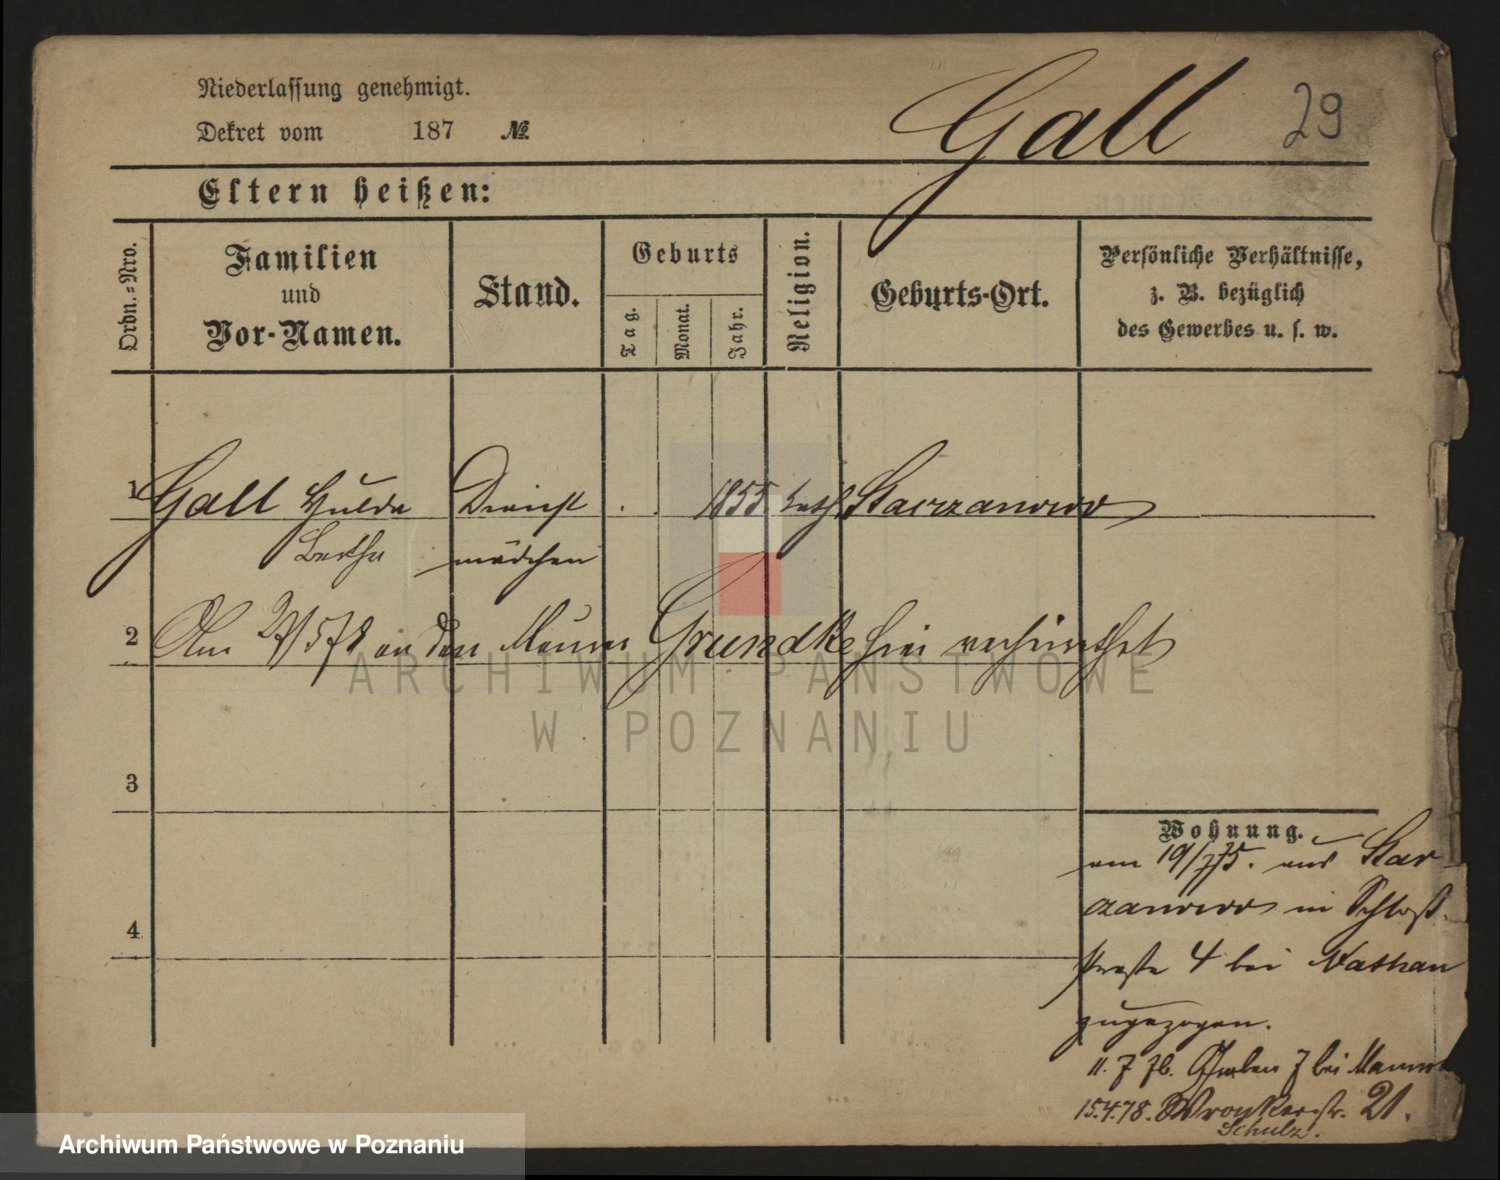 Niederlassung genehmigt.
Dekret vom 187 №
Gall 29
Eltern heißen:
Ordn.-Nro.
Familien
und
Vor-Namen.
Stand.
Geburts
Tag.
Monat.
Jahr.
Religion.
Geburts-Ort.
Persönliche Verhältnisse,
z. B. bezüglich
des Gewerbes u. s. w.
1 Gall Hulda Dienst . . 1855 kath.
Bertha mädchen
2 Am 27/5 78 an den Maurer Grundke hier verheirathet
3
Wohnung.
am 19/7 75. aus Star
zanowo in Schloß-
4
straße 4 bei Nathan
zugezogen.
11.7 76. Graben 7 bei
15.4.78. Wronkerstr. 21.
Schulz.
ARCHIWUM PAŃSTWOWE
W POZNANIU
Archiwum Państwowe w Poznaniu